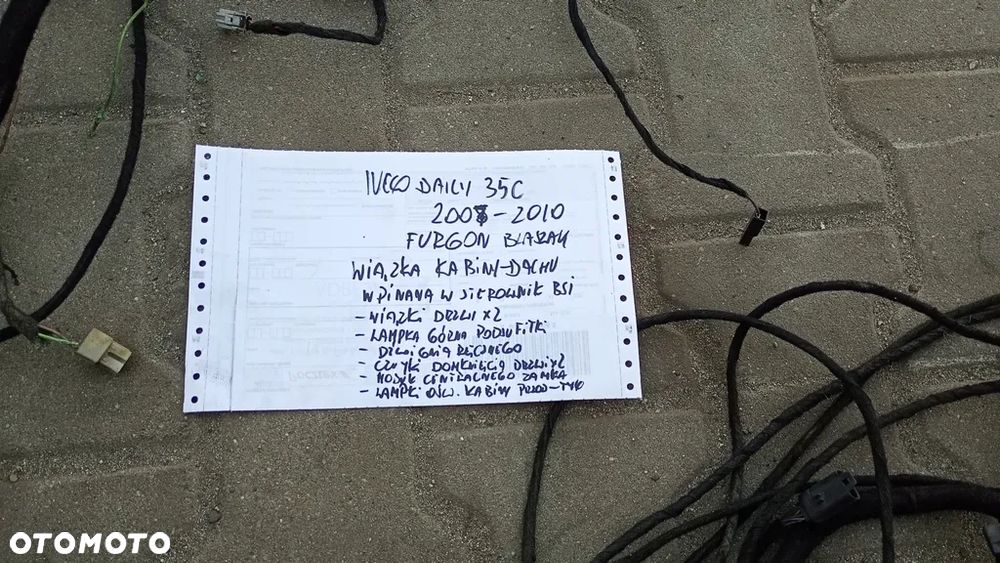 IVECO DAILY 35C
2008-2010
FURGON BLASZAK
WIĄZKA KABINY-DACHU
WPINANA W STEROWNIK BSI
- WIĄZKI DRZWI X2
- LAMPKA GÓRNA PODSUFITKI
- DZWIGNIA RĘCZNEGO
- CZUJKI DOMKNIĘCIA DRZWI X2
- CENTRALNEGO ZAMKA
- LAMPKI OŚW. KABINY PRZÓD-TYŁ
OTOMOTO